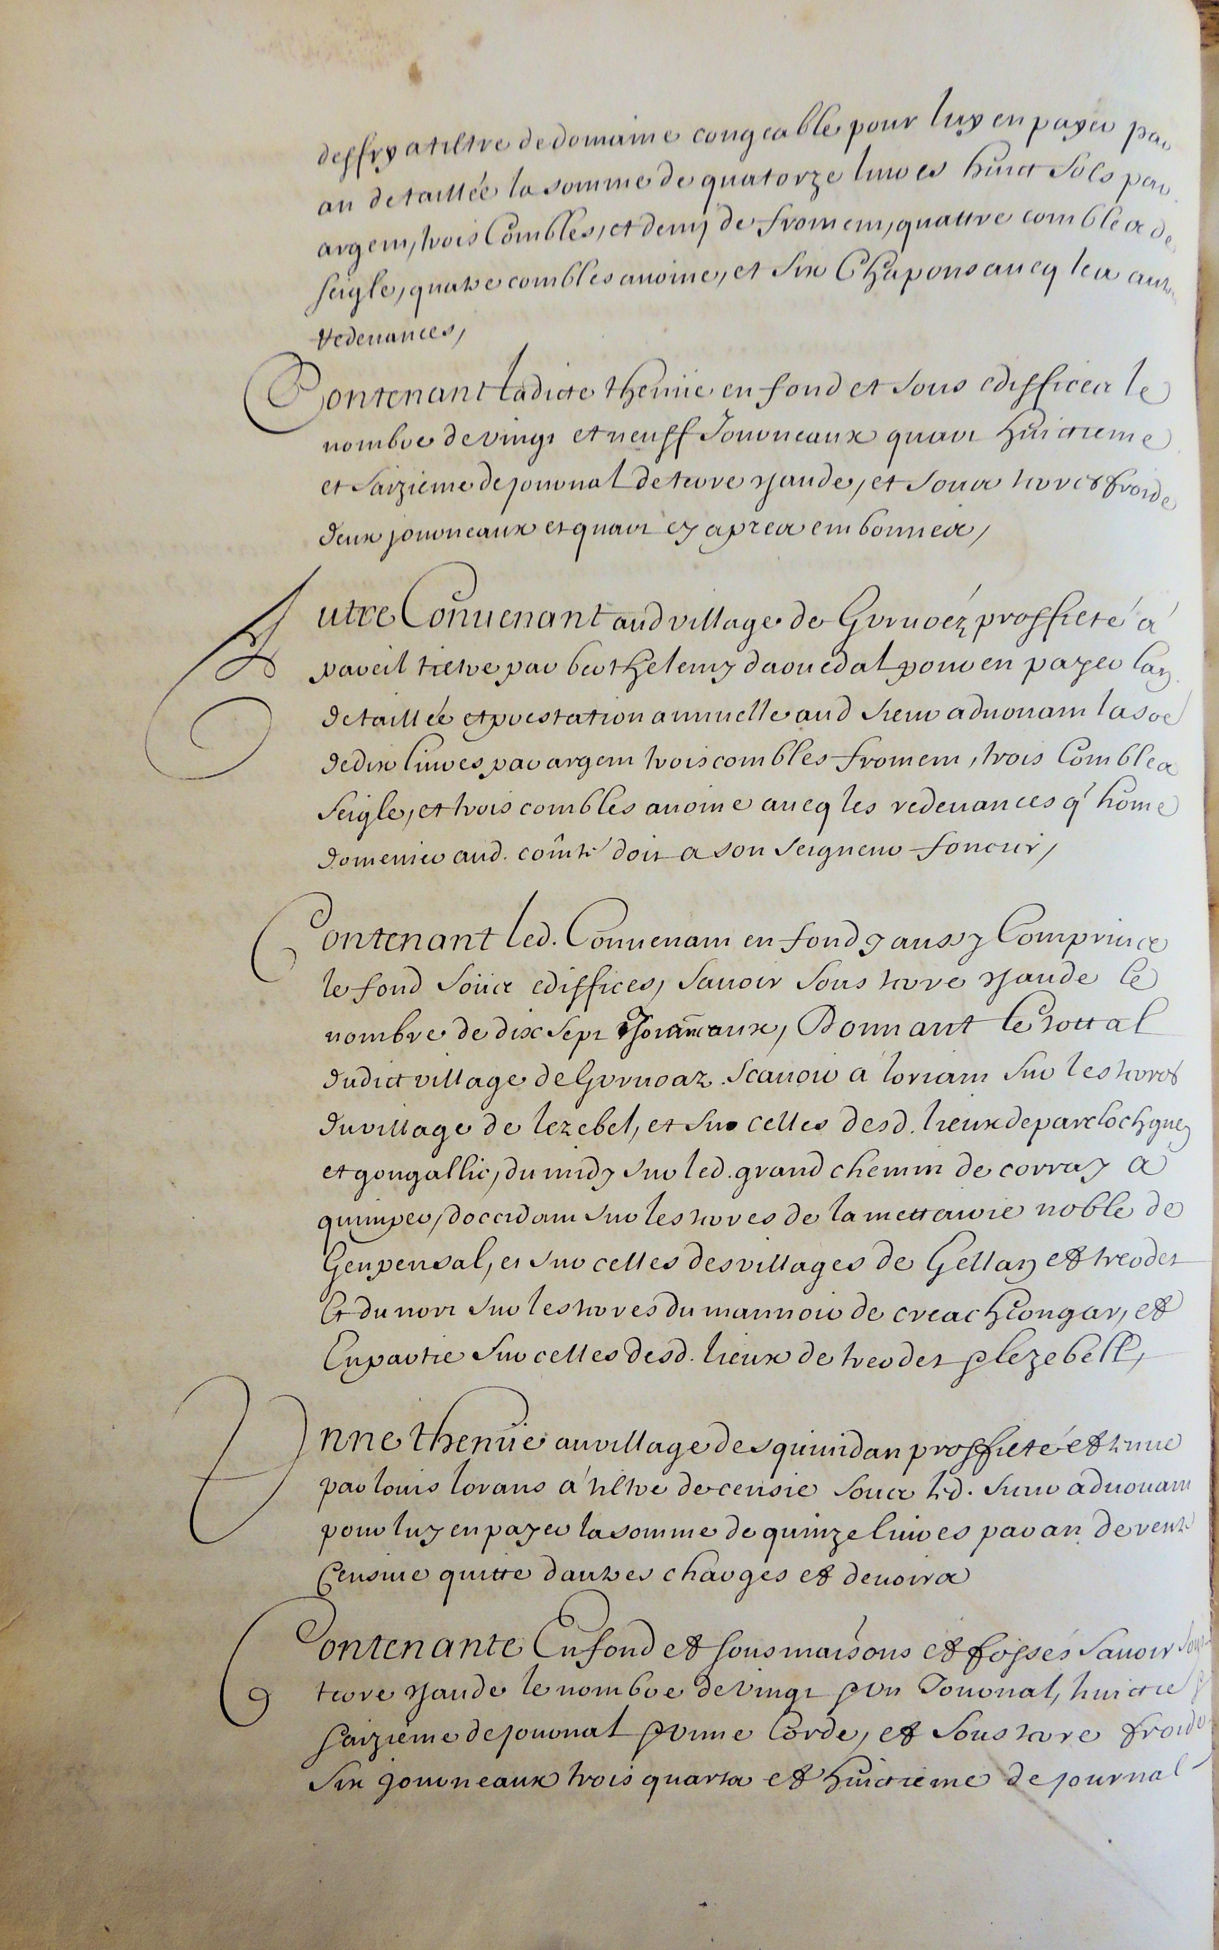 deffry a tiltre de domaine congeable pour luy en payer par
an de taillée la somme de quatorze livres huict sols par
argent, trois combles, et demy de froment, quattre combles de
seigle, quatre combles avoine, et six Chapons avecq les autres
redevances,
Contenant ladicte thenüe en fond et sous edifficea le
nombre de vingt et neuff Journeaux quart huictieme
et saizieme de journal de terre chaude, et sous terres froide
deux journeaux et quart cy apres embonnies,
Autre Convenant aud village de Gvruoéz proffieté à
pareil tiltre par berthelemy daouedal pour en payer lan
de taillée et prestation annuelle aud sieur advouant la soe
de dix livres par argent trois combles froment, trois Combles
seigle, et trois combles avoine avecq les redevances q' home
domenier aud. comté doit a son seigneur foncier,
Contenant led. Convenant en fond y aussy Comprince
le fond sous ediffices, savoir sous terre chaude le
nombre de dix sept Journeaux, Donnant le tottal
dudict village de Gvruoaz. scavoir a loriant sur les terres
du village de lezebel, et sur celles desd. lieux de parclochguen
et gongallic, du midy sur led. grand chemin de corray a
quimper, doccidant sur les terres de la mettairie noble de
Genpensal, et sur celles des villages de Gellan et treodet
Et du nort sur les terres du mannoir de creachcongar, et
En partie sur celles desd. lieux de treodet & lezebell,
Vnne thenüe au village desquividan proffieté et tenue
par louis lorans a' tiltre de censie soux led. sieur advouant
pour luy en payer la somme de quinze livres par an de rente
Censive quitte dautres charges et devoirs
Contenante En fond et sous maisons et fossés savoir sous
terre chaude le nombre de vingt & vn Journal, huictie &
saizieme de journal & vnne Corde, et sous terre froide
six journeaux trois quarts et huictieme de journal